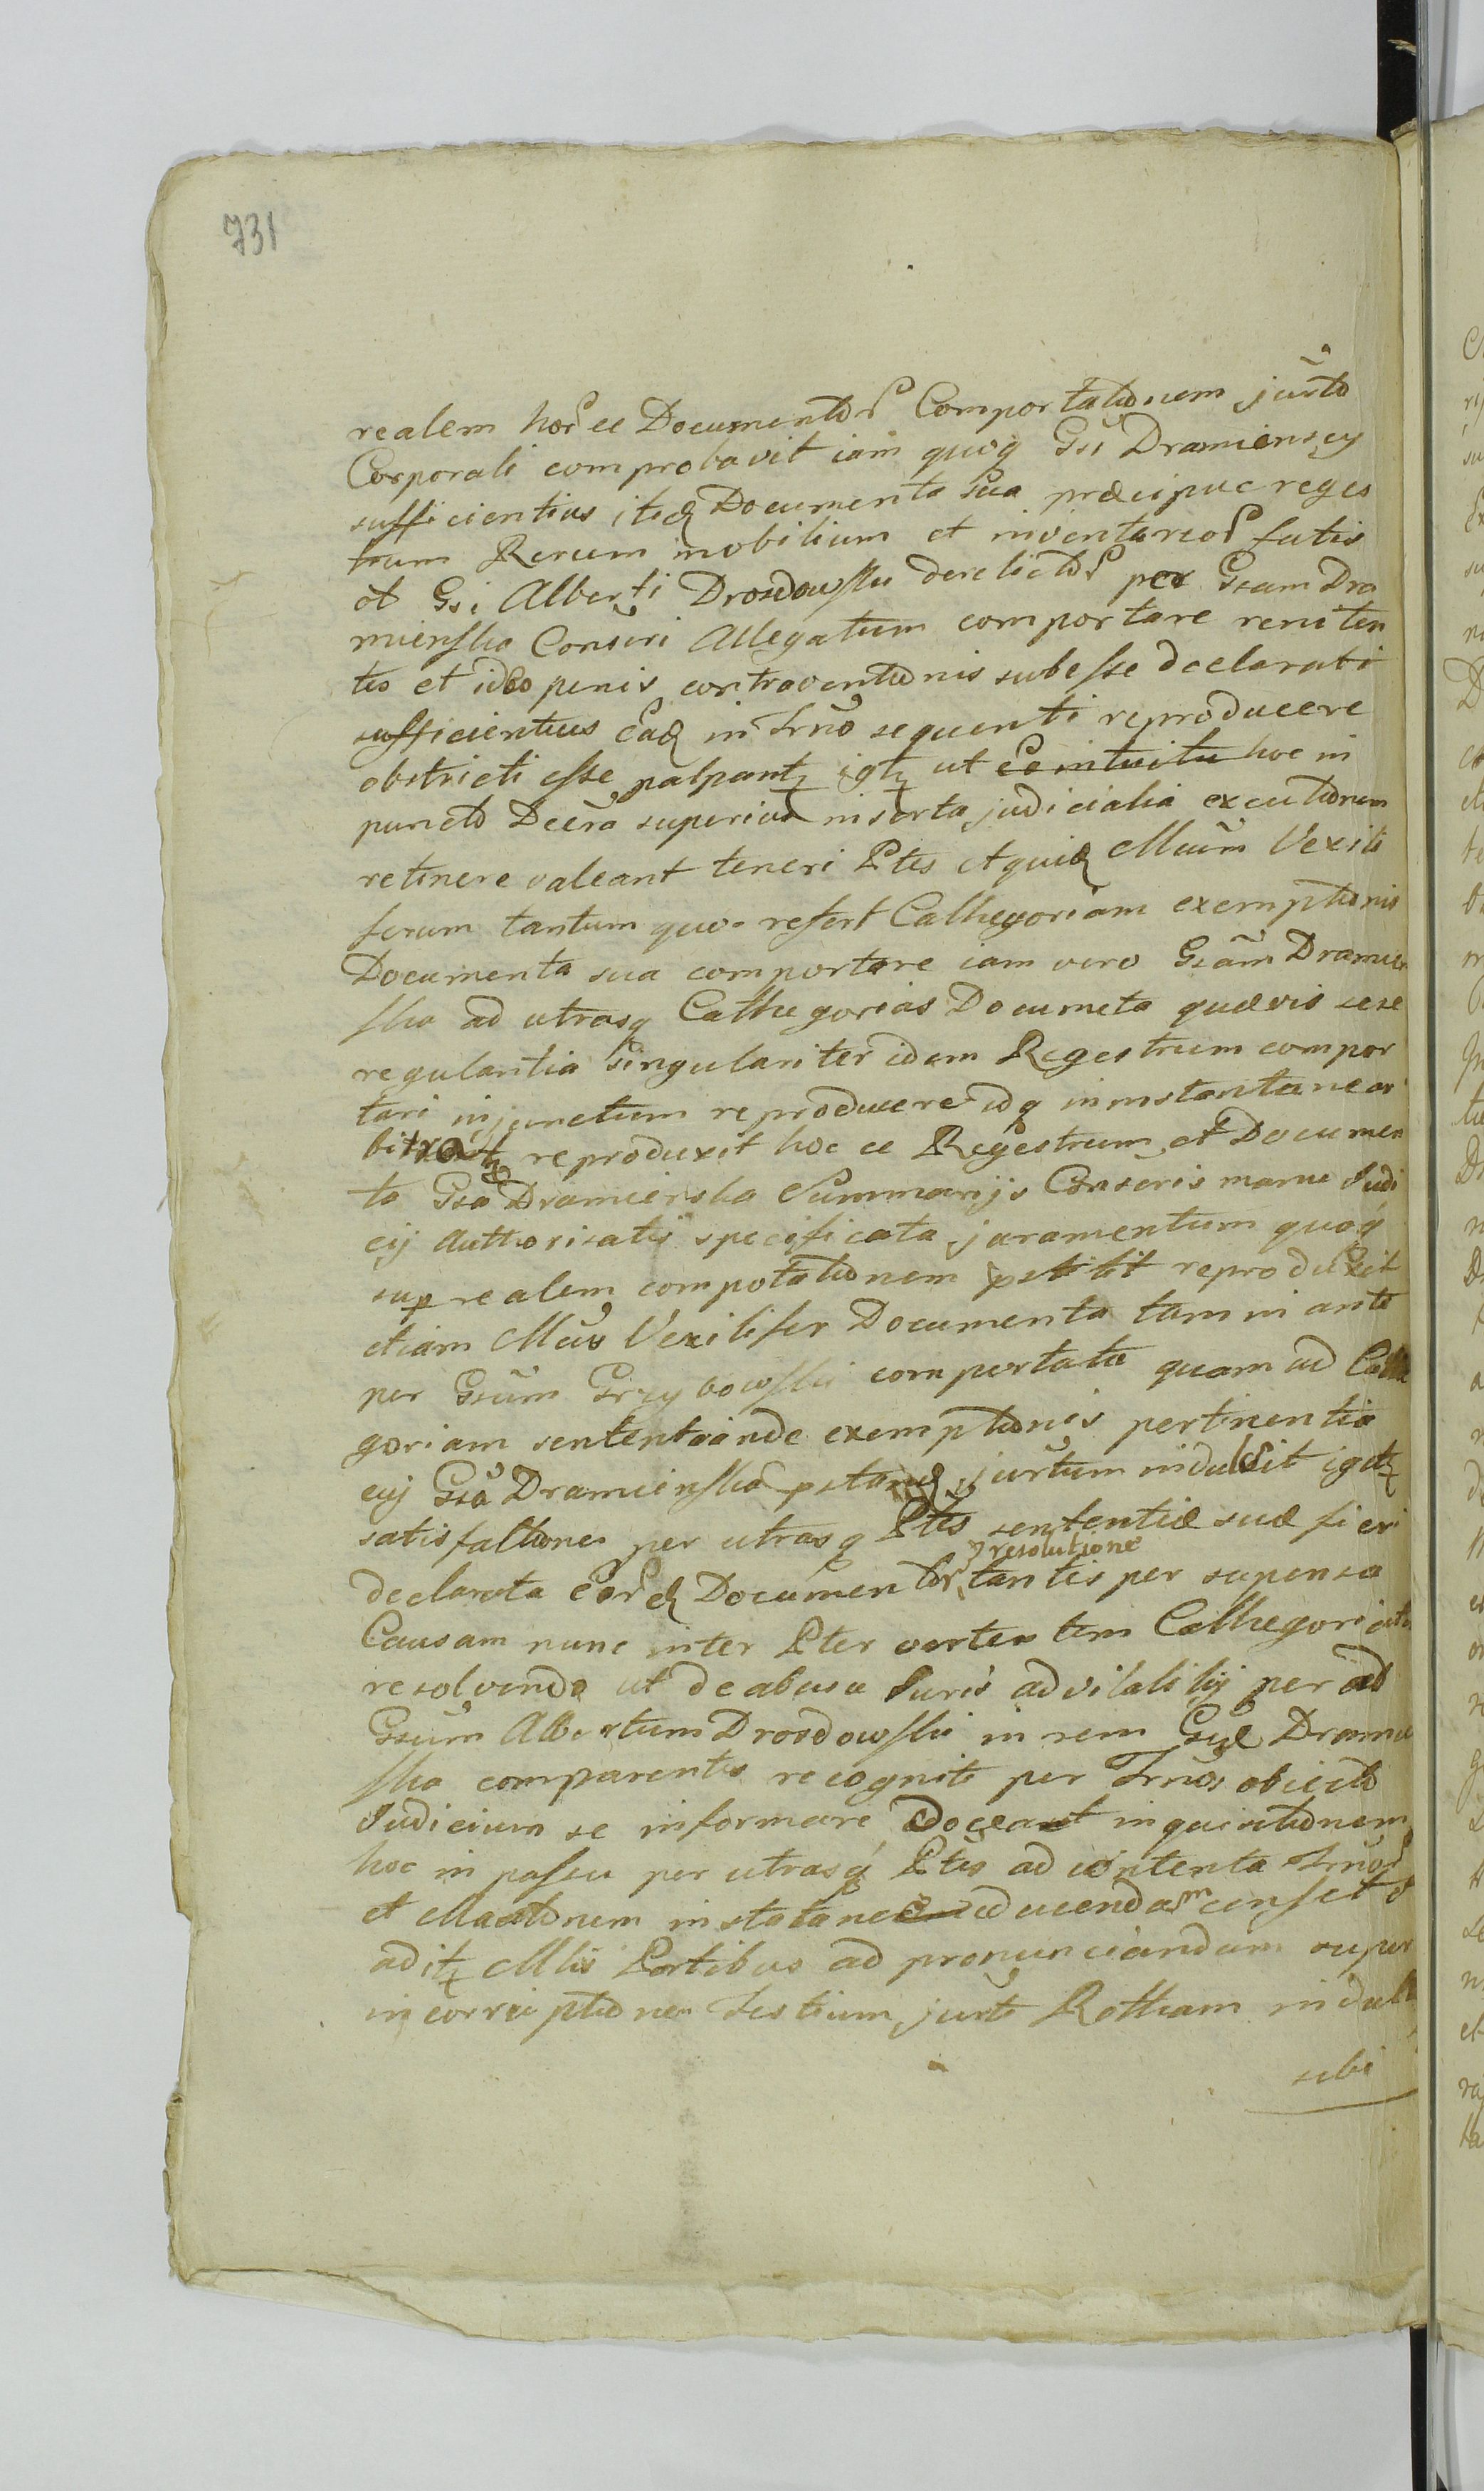 731
realem horce Documentor Comportationem jurto
Corporali comprobavit iam quoq Gsi Dramienscy
sufficientius itid Documenta sua præcipue reges
trum Rerum mobilium et inventarior fatis
ol Gsi Alberti Drozdowski derelictor per Gsam Dra
mienska Conseri Allegatum comportare reniten
tes et ideo penis contraventionis subesse declarati
sufficientius ead in Trno sequenti reproducere
obstricti esse palpant igt ut eo intuitu hoc in
puncto Decra superius inserta judicialia executionem
retinere valeant teneri Ptes Aquid Mcum Vexili
ferum tantum quo refert Cathegoriam exemptionis
Documenta sua comportare iam vero Gsam Dramien
ska ad utrasq Cathegorias Documeta quævis sese
regulantia singulariter idem Regestrum compor
tari injunctum reproducere idq in instantanear
bitrat reproduxit hoc ce Regestrum et Documen
ta Gsa Dramienska Summarijs Conseris manu Judi
cij Authorisatis specificata juramentum quoq
sup realem compotationem pstitit reproduxit
etiam Mcus Vexilifer Documenta tam in ante
per Gsum Grzybowski comportata quam ad Cathe
goriam sententiande exemptionis pertinentia
cuj Gsa Dramienska pstand jurtum indulsit igt
satisfactione per utrasq Ptes sententiæ suæ fieri
resolutione
declarata eord Documentor tantisper supensa
Causam nunc inter Ptes verten tem Cathegoriatim
resolvendo ut de abusu Juris advitalitij per ad
Gsum Albertum Drozdowski in rem Gsæ Dramie
ska comparentis recogniti per Trnos obiecto
Judicium se informare doceant inquisitionem
hoc in passu per utrasq Ptes ad contenta Trnor
et Mactionem instatanee educendam censet
adit Mlis Partibus ad pronunciandum super
incorruptione Testium jurti Rotham indul
sibi